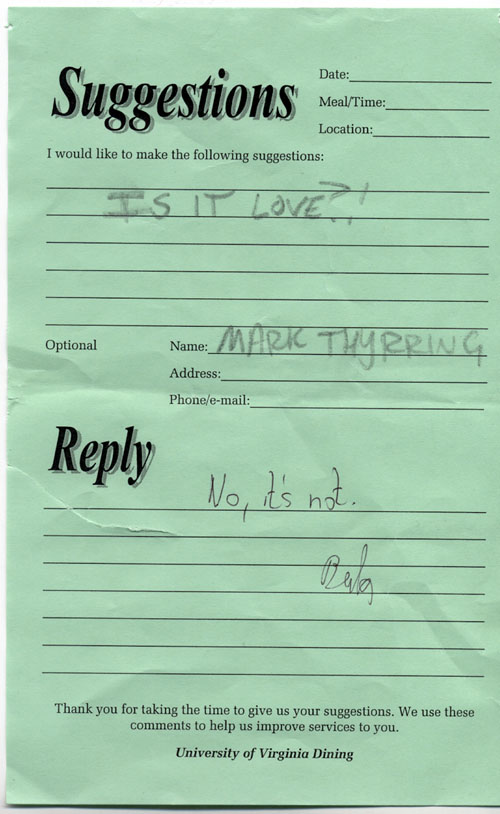 Suggestions
Date:
Meal/Time:
Location:
I would like to make the following suggestions:
IS IT LOVE?!
Optional
Name: MARK THYRRING
Address:
Phone/e-mail:
Reply
No, it's not.
Thank you for taking the time to give us your suggestions. We use these
comments to help us improve services to you.
University of Virginia Dining